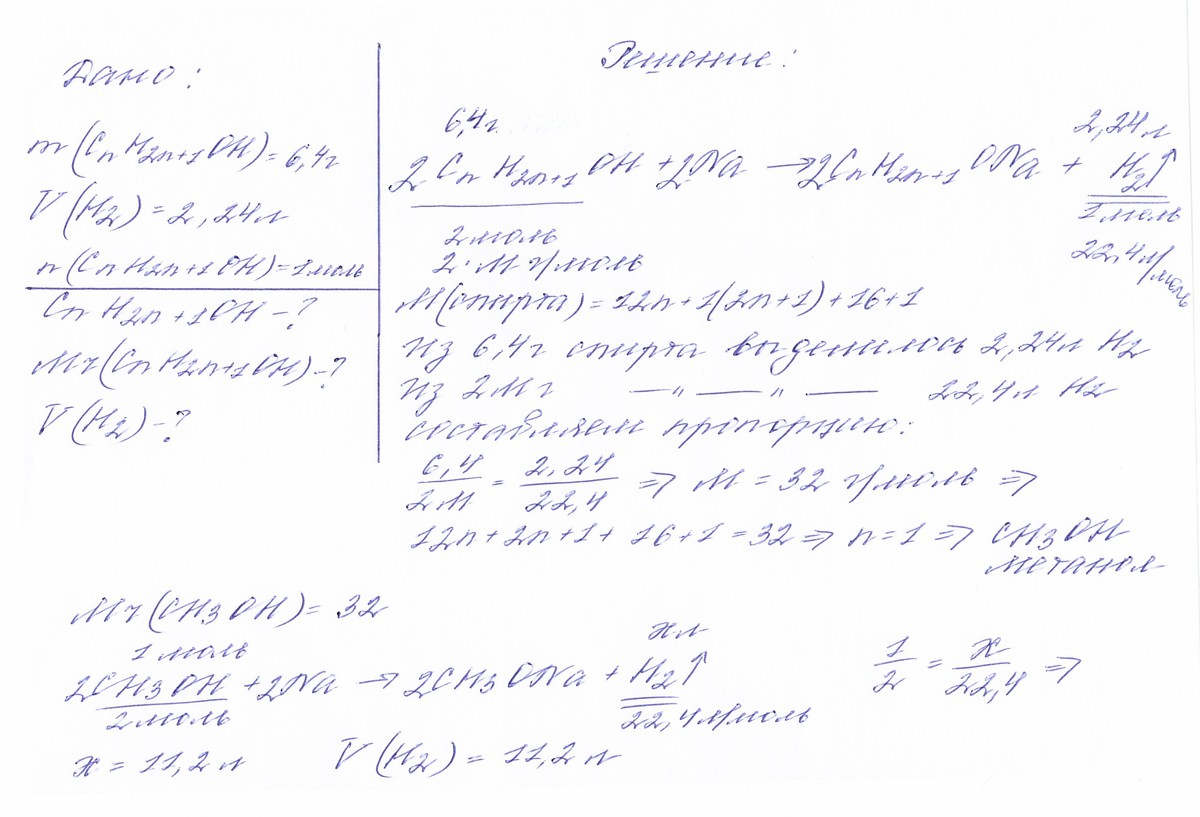 Дано:
m(CnH2n+1OH)=6,4г
V(H2)=2,24л
n(CnH2n+1OH)=1моль
CnH2n+1OH-?
Mr(CnH2n+1OH)-?
V(H2)-?
Решение:
6,4г 2,24л
2CnH2n+1OH+2Na→2CnH2n+1ONa+H2↑
2моль 1моль
2·M г/моль 22,4л/моль
M(спирта)=12n+1(2n+1)+16+1
Из 6,4г спирта выделилось 2,24л H2
Из 2Mг —〃—〃— 22,4л H2
составляем пропорцию:
6,4/2M=2,24/22,4⇒M=32г/моль⇒
12n+2n+1+16+1=32⇒n=1⇒CH3OH
метанол
Mr(CH3OH)=32
1моль xл
2CH3OH+2Na→2CH3ONa+H2↑ 1/2=x/22,4⇒
2моль 22,4л/моль
x=11,2л V(H2)=11,2л